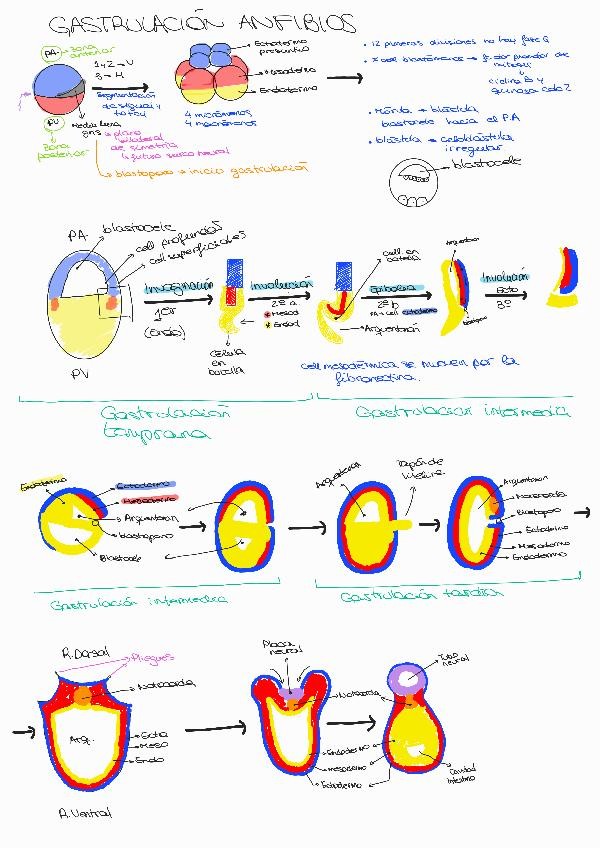 GASTRULACIÓN ANFIBIOS
PA. → zona anterior
1 y 2 → V
3 → H
segmentación
desigual y
total
PV
zona
posterior
Media luna
gris
plano
bilateral
de simetría
futuro surco neural
blastoporo → inicio gastrulación
Ectodermo
presuntivo
Mesodermo
Endodermo
4 micrómeros
4 macrómeros
• 12 primeras divisiones no hay fase G
ciclina B y
• Mórula → blástula
blastocele hacia el P.A
• blástula → celoblástula
irregular
blastocele
PA.
blastocele
cell profundas
cell superficiales
PV
Invaginación
1ero
célula
en
botella
Involución
2º a
Mesod
Endod
cell en
botella
Arquenteron
Epibolia
2º b
Arquenteron
blastoporo
Involución
Ecto
3º
cell mesodérmica se mueven por la
fibronectina.
Gastrulación
temprana
Gastrulación intermedia
Endodermo
Ectodermo
Mesodermo
Arquenteron
blastoporo
Blastocele
Arquenteron
Tapón de
vitelino
Arquenteron
Notocorda
Blastoporo
Ectodermo
Mesodermo
Endodermo
Gastrulación intermedia
Gastrulación tardía
R. Dorsal
Pliegues
Notocorda
Arq.
Ecto
Meso
Endo
R. Ventral
Placa
neural
Notocorda
Endodermo
mesodermo
Ectodermo
Tubo
neural
Cavidad
intestino